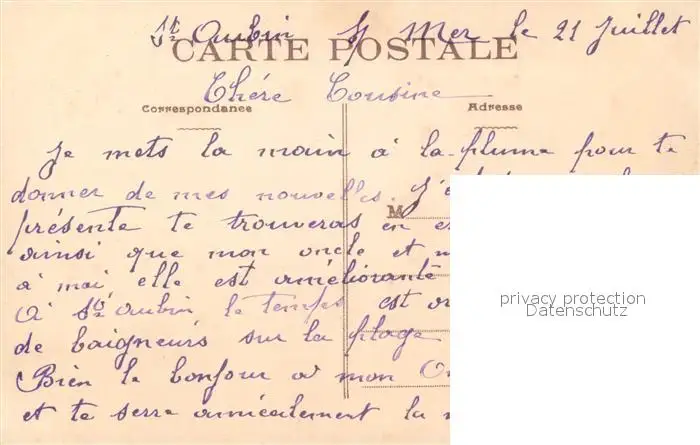 St Aubin s/ Mer le 21 Juillet
CARTE POSTALE
Chére Cousine
Correspondance
Adresse
Je mets la main à la plume pour te
donner de mes nouvelles. J'
présente te trouveras en
M
ainsi que mon oncle et
à moi elle est améliorante
A St Aubin le temps est
de baigneurs sur la plage
Bien le bonjour à mon
et te serre amicalement la
privacy protection
Datenschutz